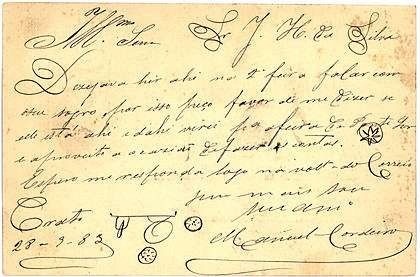 Illmo
Sr J. H. da Silva
Desejava hir ahi na 2ª feira falar com
seu sogro, por isso peço favor de me dizer se
elle está ahi e dahi virei pa a feira da
e aproveito a ocasião
Espero me responda logo na volta do Correio
sou mais sou
Seu amº
Crato
28-9-83
Manuel Cordeiro